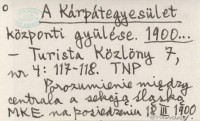 A Kárpátegyesület
központi gyülése. 1900...
— Turista Közlöny 7,
nr 4: 117-118. TNP
Porozumienie między
centralą a sekcją śląską
MKE na posiedzeniu 18 III 1900